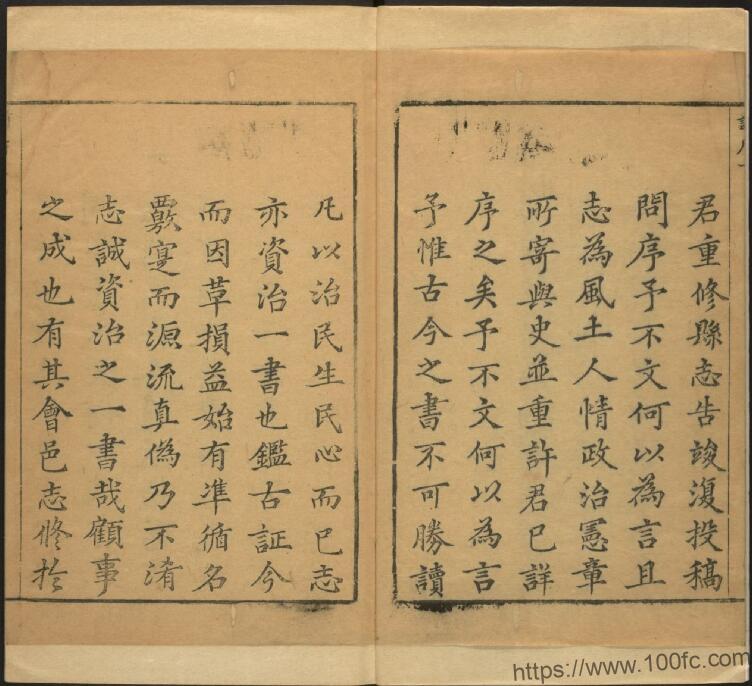 君重修縣志告竣復投稿
問序予不文何以為言且
志為風土人情政治憲章
所寄與史並重許君已詳
序之矣予不文何以為言
予惟古今之書不可勝讀
凡以治民生民心而已志
亦資治一書也鑑古証今
而因革損益始有準循名
覈寔而源流真僞乃不淆
志誠資治之一書哉顧事
之成也有其會邑志修於
https://www.100fc.com